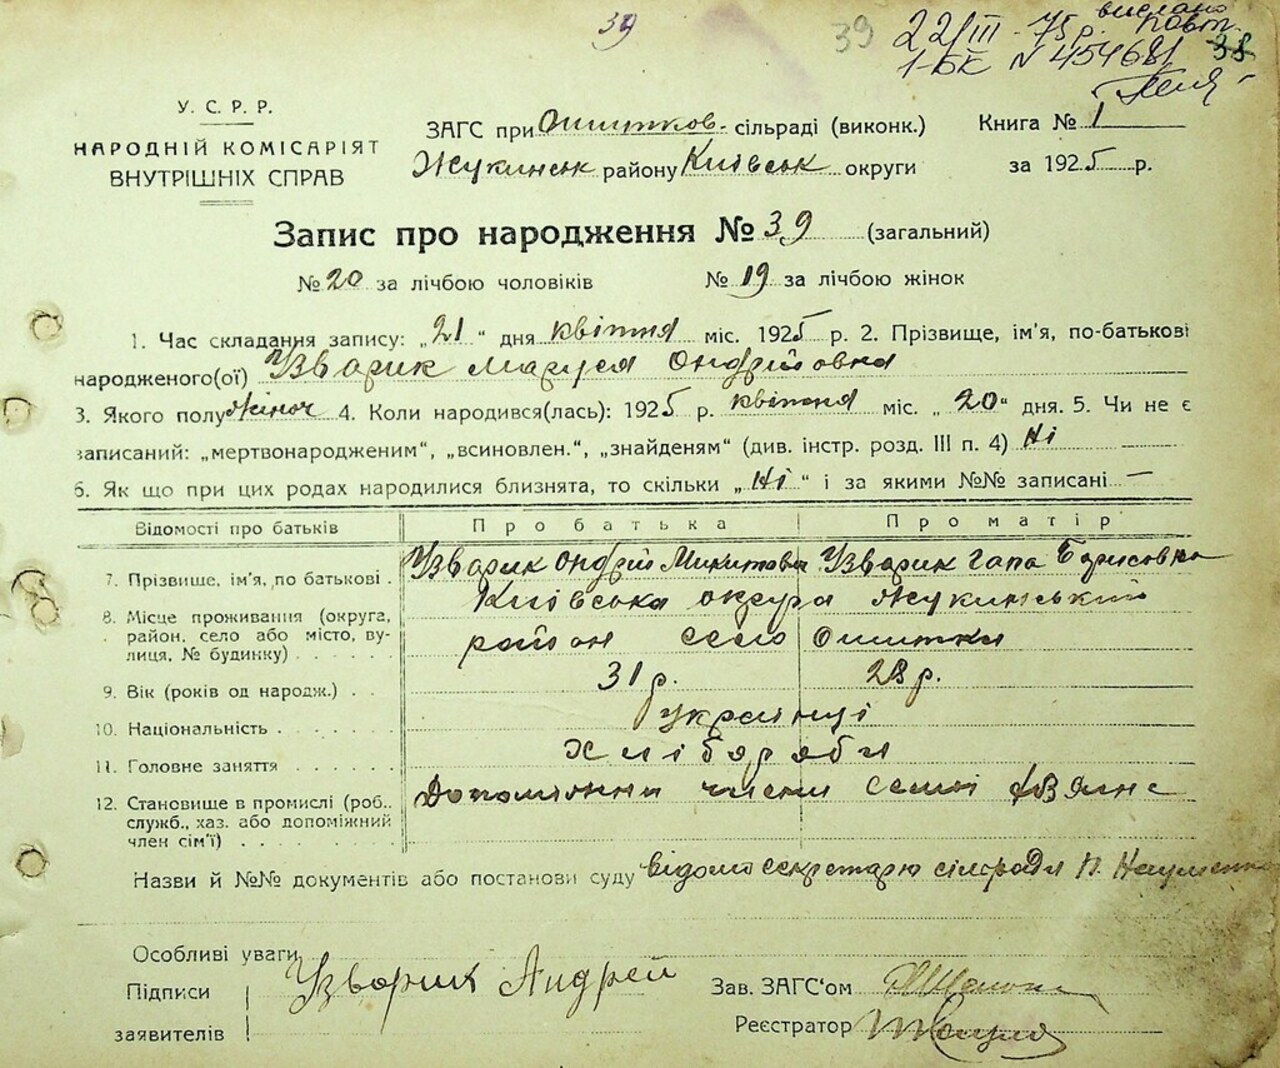 39
39
22/III-75р. вислано повт.
1-БК № 454681
38
У. С. Р. Р.
НАРОДНІЙ КОМІСАРІЯТ
ВНУТРІШНІХ СПРАВ
ЗАГС при Ошитков. сільраді (виконк.)
Жукинськ району Київськ округи
Книга № 1
за 1925 р.
Запис про народження № 39 (загальний)
№ 20 за лічбою чоловіків № 19 за лічбою жінок
1. Час складання запису: „21“ дня квітня міс. 1925 р. 2. Прізвище, ім'я, по-батькові
народженого(ої) Узварик Маруся Ондрійовна
3. Якого полу жіноч 4. Коли народився(лась): 1925 р. квітня міс. „20“ дня. 5. Чи не є
записаний: „мертвонародженим“, „всиновлен.“, „знайденям“ (див. інстр. розд. III п. 4) Ні
6. Як що при цих родах народилися близнята, то скільки „Ні“ і за якими №№ записані —
Відомості про батьків Про батька Про матір
7. Прізвище, ім'я, по батькові . Узварик Ондрій Микитович Узварик Гапа Борисовна
8. Місце проживання (округа, Київська округа Жукинський
район, село або місто, ву- район село Ошитки
лиця, № будинку) . . . . .
9. Вік (років од народж.) . . 31 р. 28 р.
10. Національність . . . . . . українці
11. Головне заняття . . . . . . Хлібороби
12. Становище в промислі (роб., Допоміжни члени семьї
служб., хаз. або допоміжний
член сім'ї) . . . . . . . . .
Назви й №№ документів або постанови суду відомо секретарю сілради П. Науменко
Особливі уваги
Підписи Узварик Андрей
заявителів
Зав. ЗАГС‘ом
Реєстратор